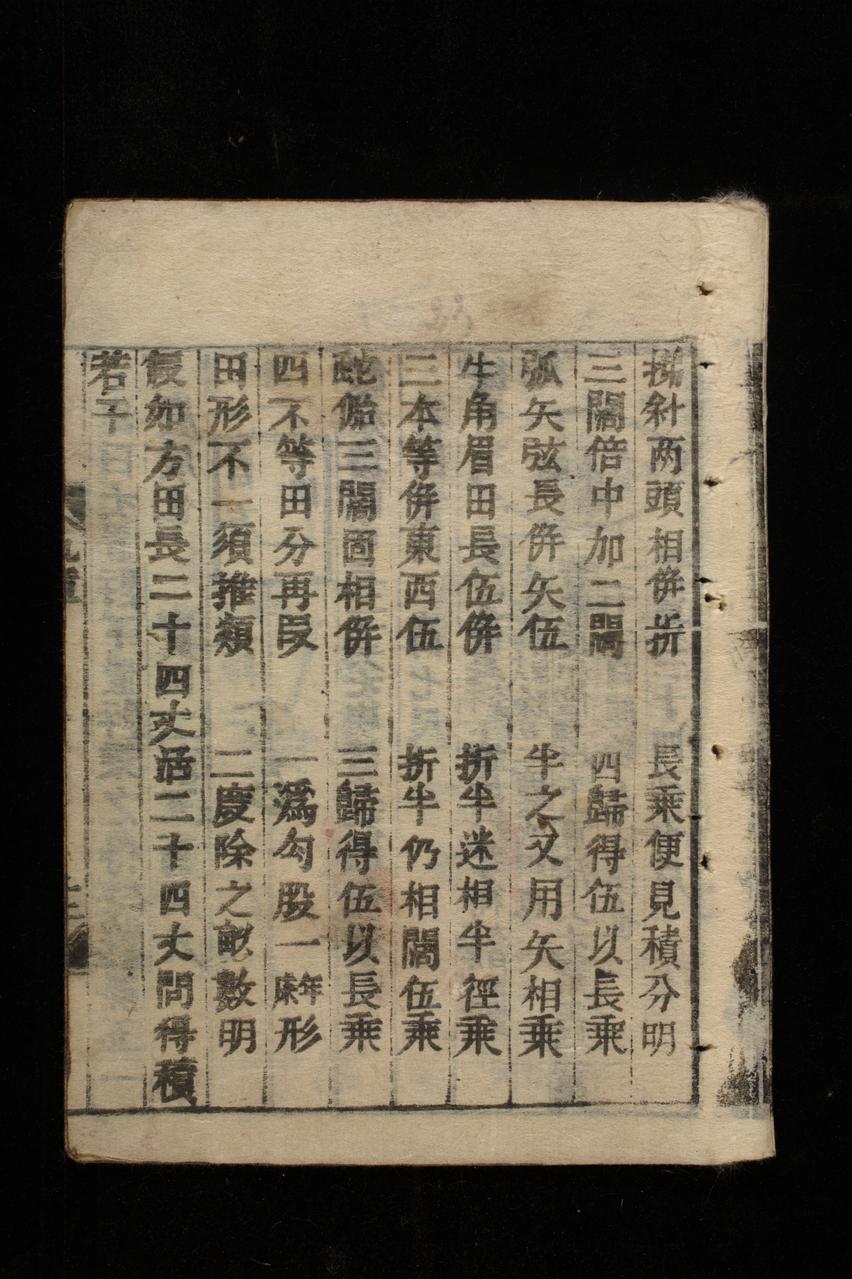 梯斜两頭相併折　長乗便見積分明
三濶倍中加二濶　四歸得伍以長乗
弧矢弦長併矢伍　半之又用矢相乗
牛角眉田長伍併　折半迷相半徑乗
二本等併東西伍　折半仍相濶伍乗
蛇𦙍三濶固相併　三歸得伍以長乗
四不等田分再叚　一爲勾股一年來形
田形不一須推類　二度除之畝數明
假如方田長二十四丈活二十四丈問得積
若干
九章